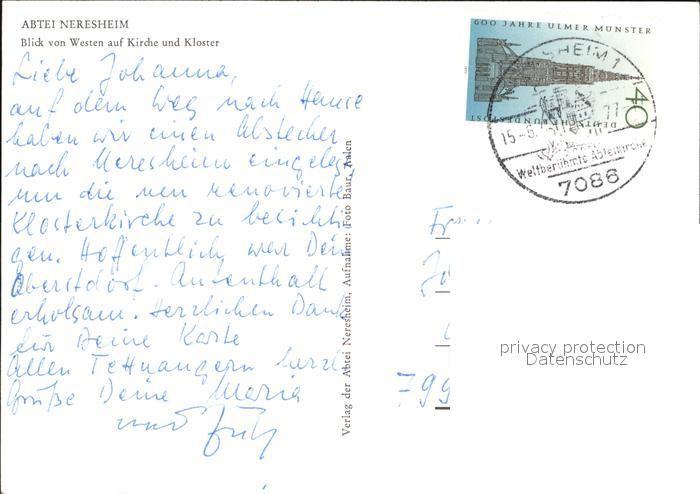 ABTEI NERESHEIM
Blick von Westen auf Kirche und Kloster
Liebe Johanna,
auf dem Weg nach Hause
haben wir einen Abstecher
nach Neresheim eingeleg
um die neu renovierte
Klosterkirche zu besichti
gen. Hoffentlich war Dein
Oberstdorf-Aufenthalt
erholsam. Herzlichen Dank
für Deine Karte
Allen Tettnangern herzl
Grüße Deine Maria
und Fritz
Verlag der Abtei Neresheim, Aufnahme: Foto Baur, Aalen
600 JAHRE ULMER MÜNSTER
40
DEUTSCHE BUNDESPOST
SHEIM 1
Weltberühmte Abteikirche
7086
799
privacy protection
Datenschutz